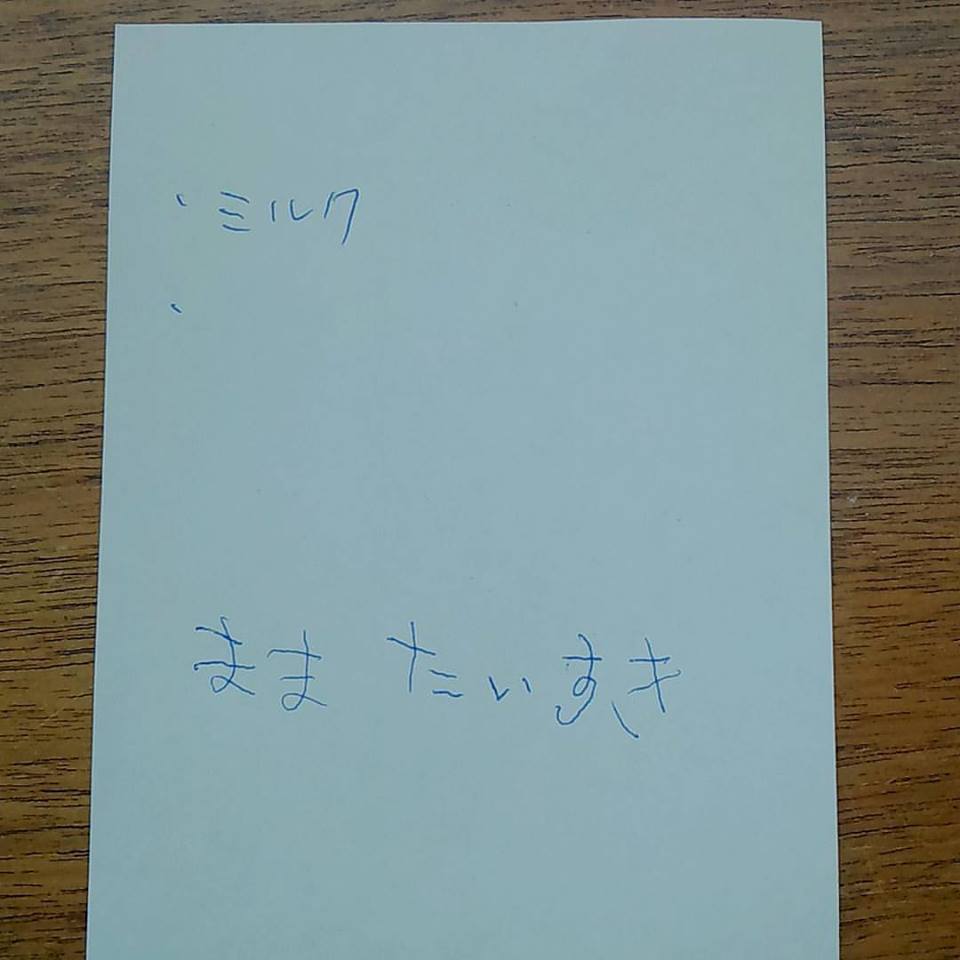 ・ミルク
・
まま たいすき